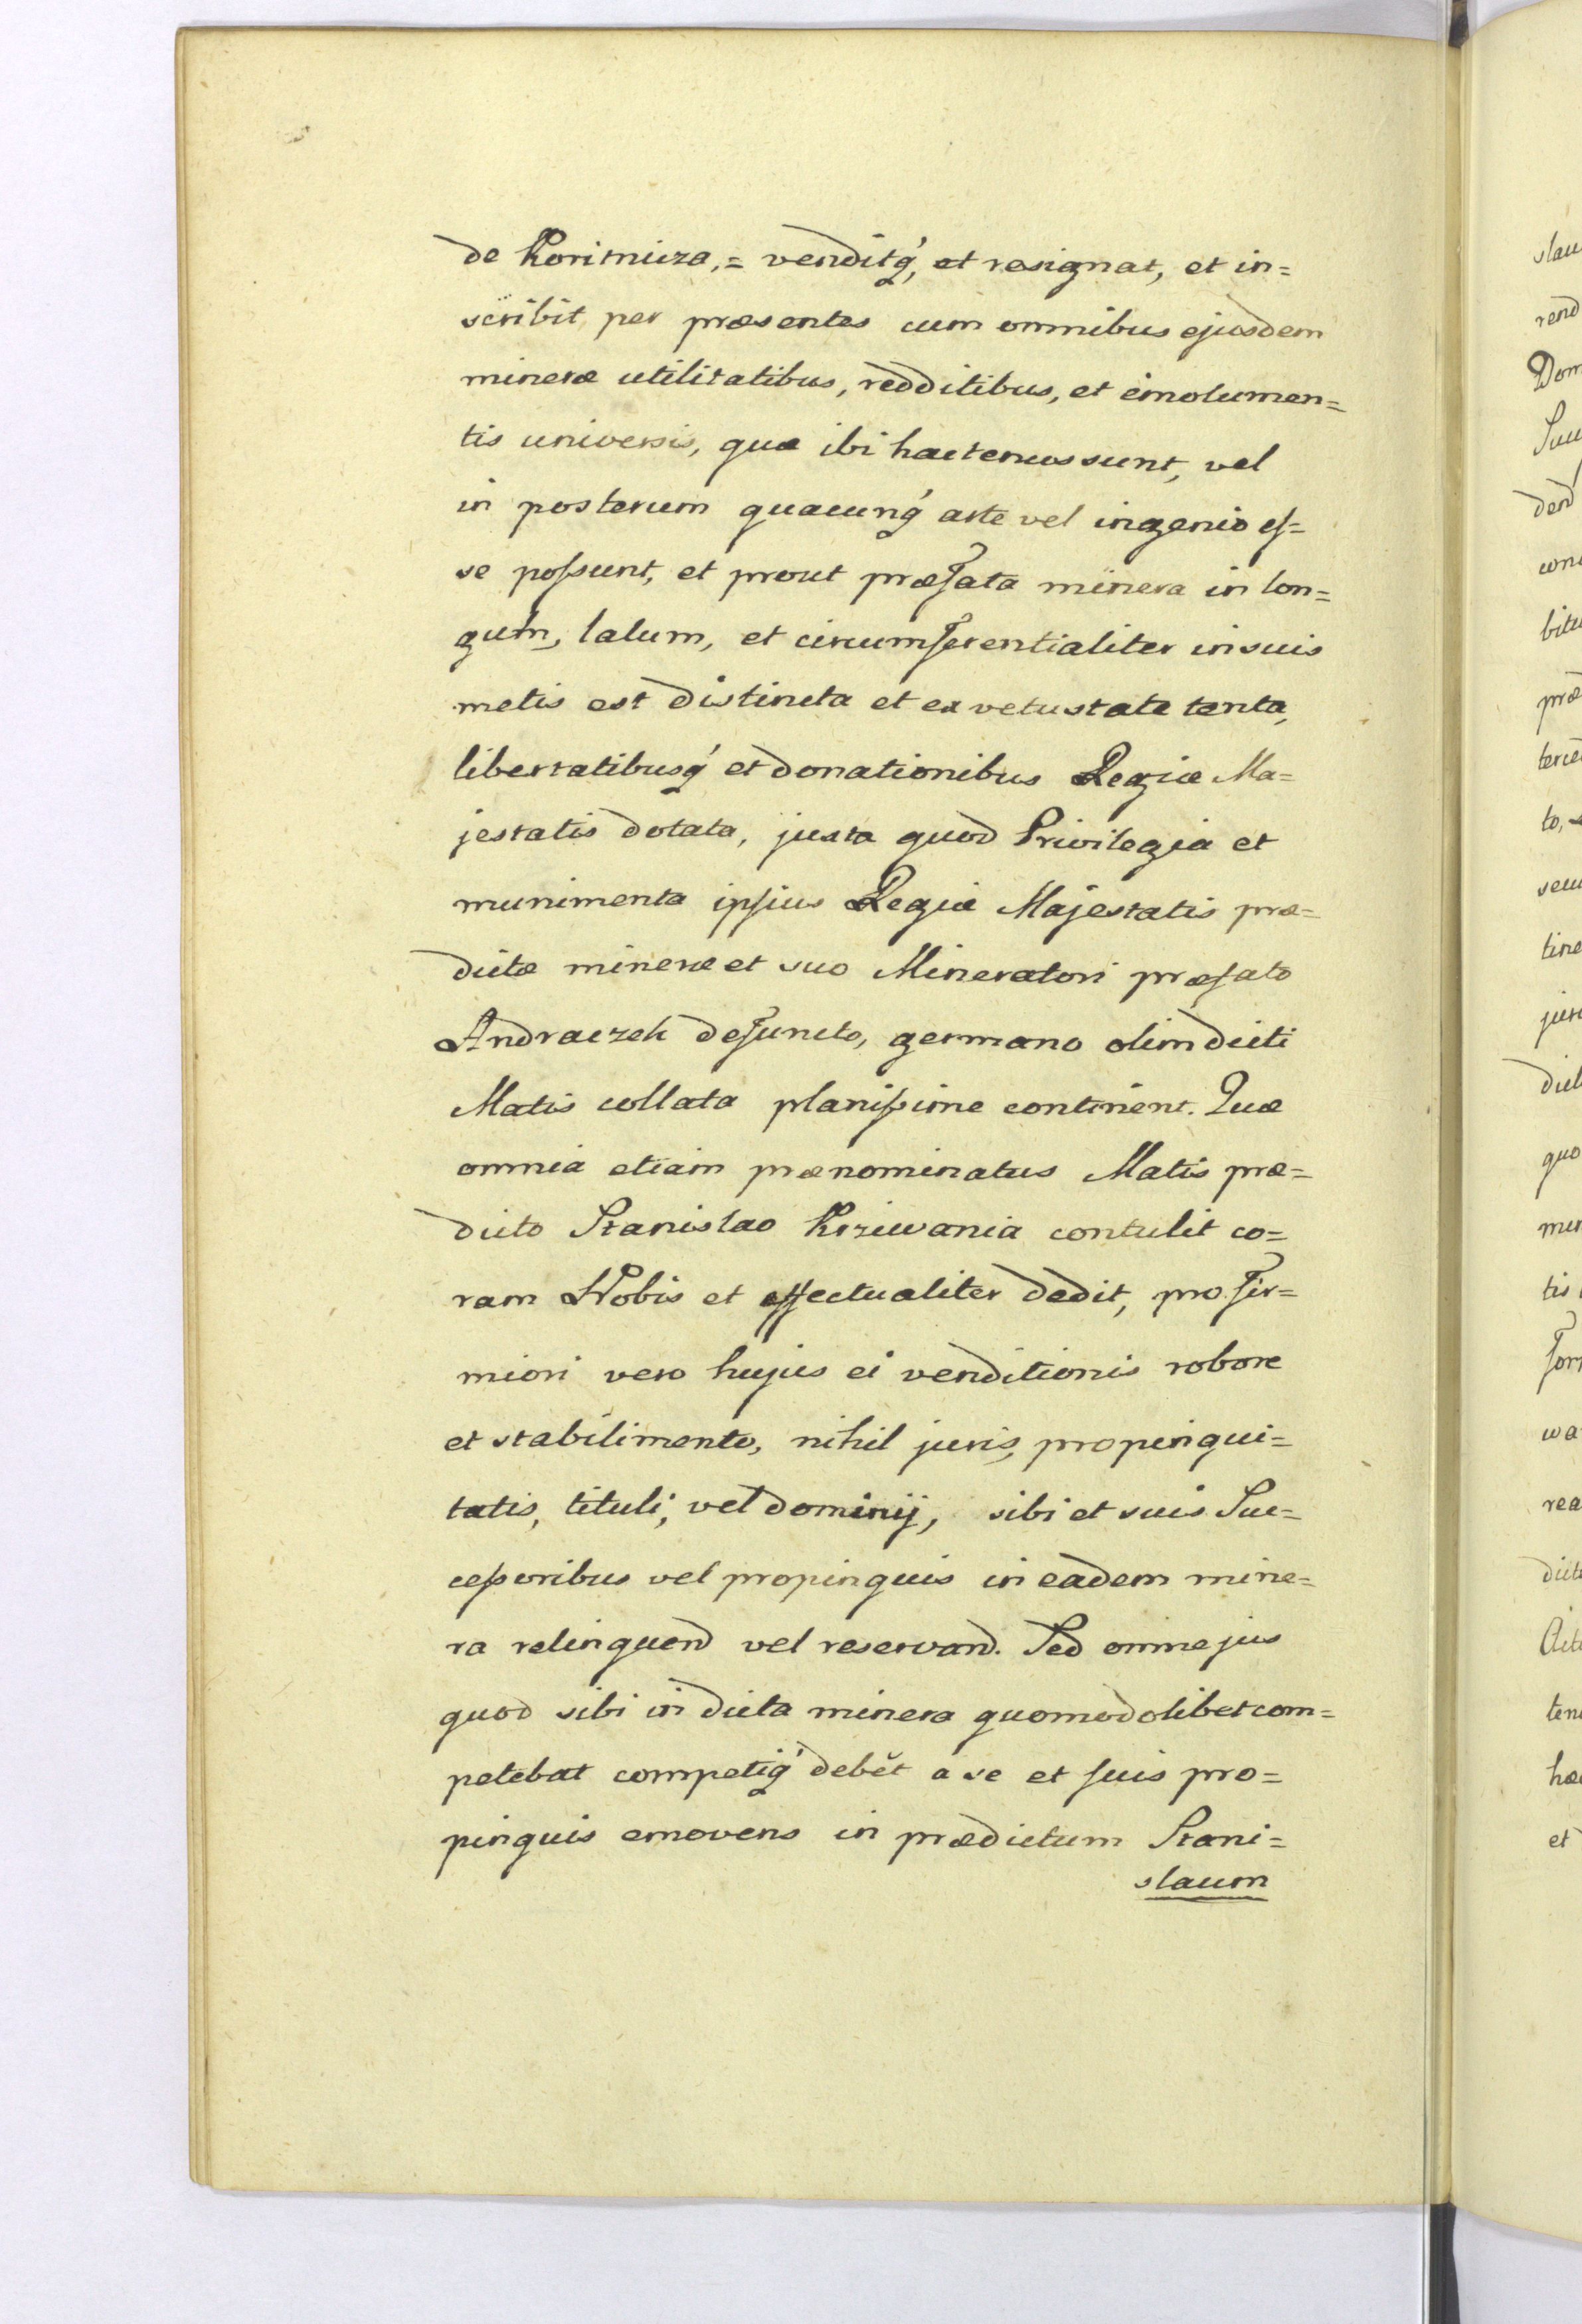 de Koritnicza, = venditq́, et resignat, et in=
scribit per præsentes cum omnibus ejusdem
mineræ utilitatibus, redditibus, et emolumen=
tis universis, quæ ibi hactenus sunt, vel
in posterum quacunq́ arte vel ingenio eſ=
se poſsunt, et prout præfata minera in lon=
gum, latum, et circumferentialiter in suis
metis est distincta et ex vetustate tenta,
libertatibusq́ et donationibus Regiæ Ma=
jestatis dotata, juxta quod Privilegia et
munimenta ipſius Regiæ Majestatis præ=
dictæ mineræ et suo Mineratori præfato
Andraczek defuncto, germano olim dicti
Matis collata planiſsime continent. Quæ
omnia etiam prænominatus Matis præ=
dicto Stanislao Krziwania contulit co=
ram Nobis et effectualiter dedit, pro fir=
miori vero hujus ei venditionis robore
et stabilimento, nihil juris, propinqui=
tatis, tituli, vel dominij, sibi et suis Suc=
ceſsoribus vel propinquis in eadem mine=
ra relinquend vel reservand. Sed omne jus
quod sibi in dicta minera quomodolibet com=
petebat competiq́ debĕt a se et ſuis pro=
pinquis emovens in prædictum Stani=
slaum